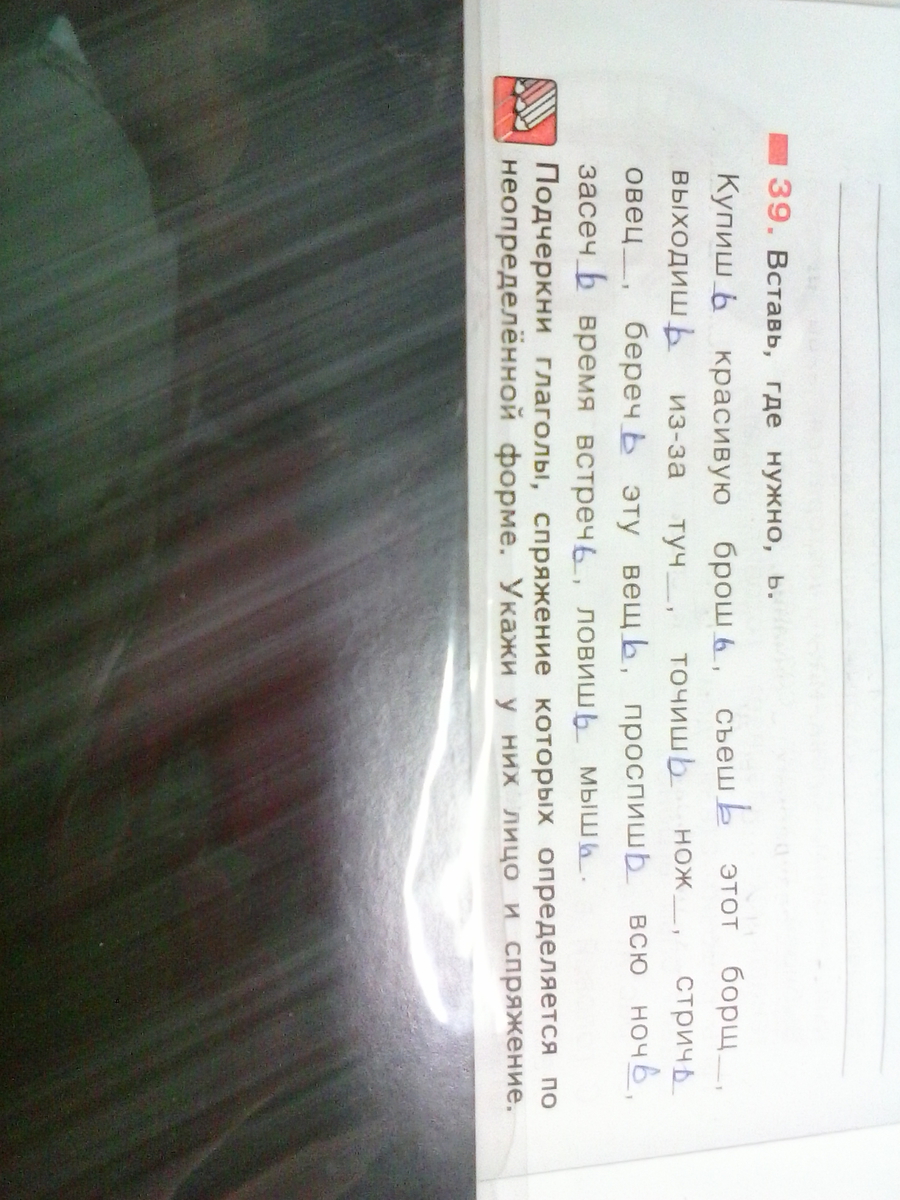 39. Вставь, где нужно, ь.
Купишь красивую брошь, съешь этот борщ_,
выходишь из-за туч_, точишь нож_, стричь
овец_, беречь эту вещь, проспишь всю ночь,
засечь время встречь_, ловишь мышь.
Подчеркни глаголы, спряжение которых определяется по
неопределённой форме. Укажи у них лицо и спряжение.